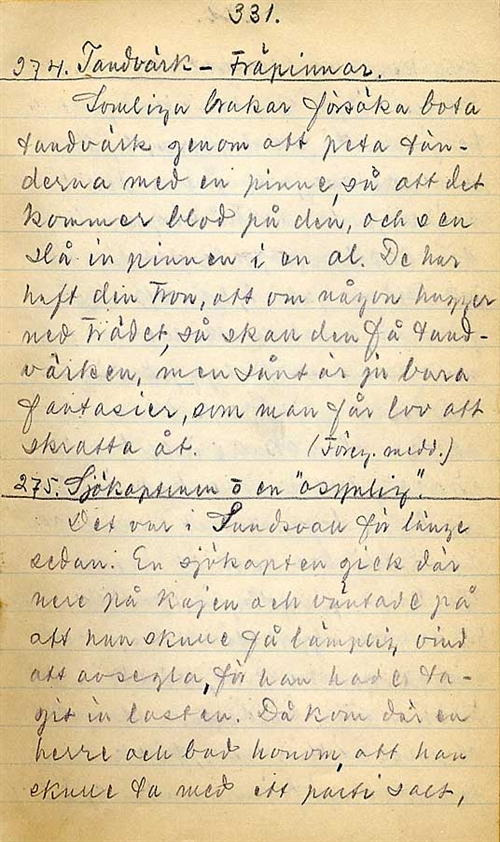 331.
274. Tandvärk – Träpinnar.
Somliga brukar försöka bota
tandvärk genom att peta tän-
derna med en pinne, så att det
kommer blod på den, och sen
slå in pinnen i en al. De har
haft den tron, att om någon hugger
ned trädet, så skall den få tand-
värken, men sånt är ju bara
fantasier, som man får lov att
skratta åt. (Föreg. medd.)
275. Sjökaptenen o en "osynlig".
Det var i Sundsvall för länge
sedan. En sjökapten gick där
nere på kajen och väntade på
att han skulle få lämplig vind
att avsegla, för han hade ta-
git in lasten. Då kom där en
herre och bad honom, att han
skulle ta med ett parti salt,